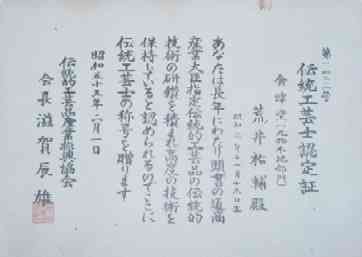 伝統工芸士認定証
会津塗
荒井祐輔殿
あなたは長年にわたり頭書の通商
産業大臣指定伝統的工芸品の伝統的
技術の研鑽を積まれ高度の技術を
保持していると認められるのでここに
伝統工芸士の称号を贈ります
昭和五十五年二月一日
伝統的工芸品産業振興協会
会長 滋賀辰雄